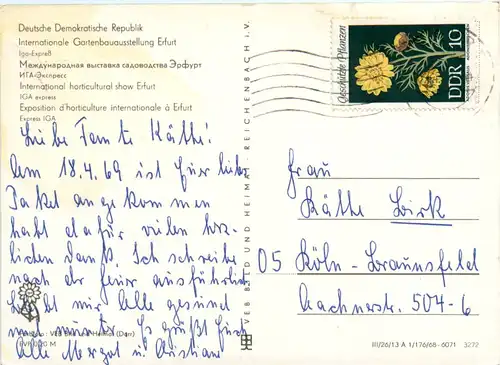 Deutsche Demokratische Republik
Internationale Gartenbauausstellung Erfurt
Iga-Expreß
Международная выставка садоводства Эрфурт
ИГА-Экспресс
International horticultural show Erfurt
IGA express
Exposition d'horticulture internationale à Erfurt
Express IGA
Liebe Tante Käthe!
Am 18.4.69 ist Euer liebes
Paket angekommen
habt dafür vielen herz-
lichen Dank. Ich schreibe
nach der Feier ausführlich
Lebt mir alle gesund
und munter. Es grüßt Euch
alle u. Christian
VEB BILD UND HEIMAT REICHENBACH i. V.
Geschützte Pflanzen
DDR 10
Frau
Käthe Birk
05 Köln - Braunsfeld
Aachenerstr. 504-6
III/26/13 A 1/176/68-6071 3272